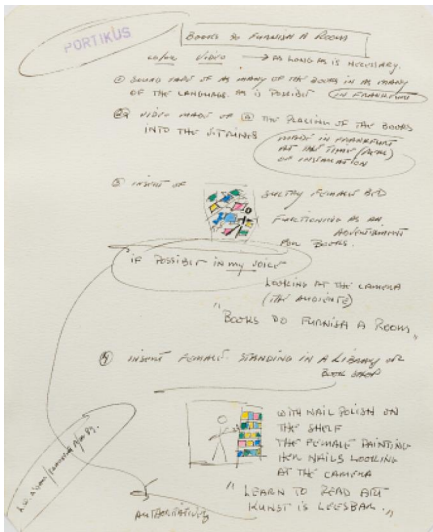 PORTIKUS
BOOKS DO FURNISH A ROOM
COLOR VIDEO → AS LONG AS IS NECESSARY.
① SOUND TAPE OF AS MANY OF THE BOOKS IN AS MANY
OF THE LANGUAGE. AS IS POSSIBLE IN FRANKFURT
② VIDEO MADE OF THE PLACING OF THE BOOKS
INTO THE
MADE IN FRANKFURT
AT THE TIME (REAL)
OF INSTALLATION
③ INSERT OF
SULTRY FEMALE
FUNCTIONING AS AN
ADVERTISEMENT
FOR BOOKS.
IF POSSIBLE IN MY VOICE
LOOKING AT THE CAMERA
(THE AUDIENCE)
"BOOKS DO FURNISH A ROOM"
④ INSERT FEMALE STANDING IN A LIBRARY OR
BOOK SHOP
WITH NAIL POLISH ON
THE SHELF
THE FEMALE PAINTING
HER NAILS LOOKING
AT THE CAMERA
" LEARN TO READ ART
KUNST IS LEESBAR."
AUTHORITATIVE